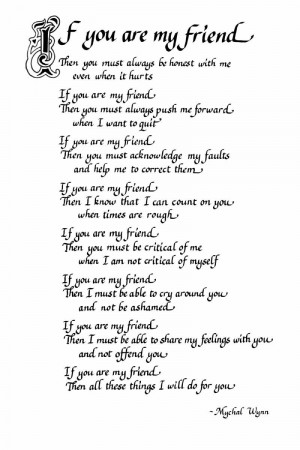 If you are my friend
Then you must always be honest with me
even when it hurts
If you are my friend
Then you must always push me forward
when I want to quit
If you are my friend
Then you must acknowledge my faults
and help me to correct them
If you are my friend
Then I know that I can count on you
when times are rough
If you are my friend
Then you must be critical of me
when I am not critical of myself
If you are my friend
Then I must be able to cry around you
and not be ashamed
If you are my friend
Then I must be able to share my feelings with you
and not offend you
If you are my friend
Then all these things I will do for you
~Mychal Wynn